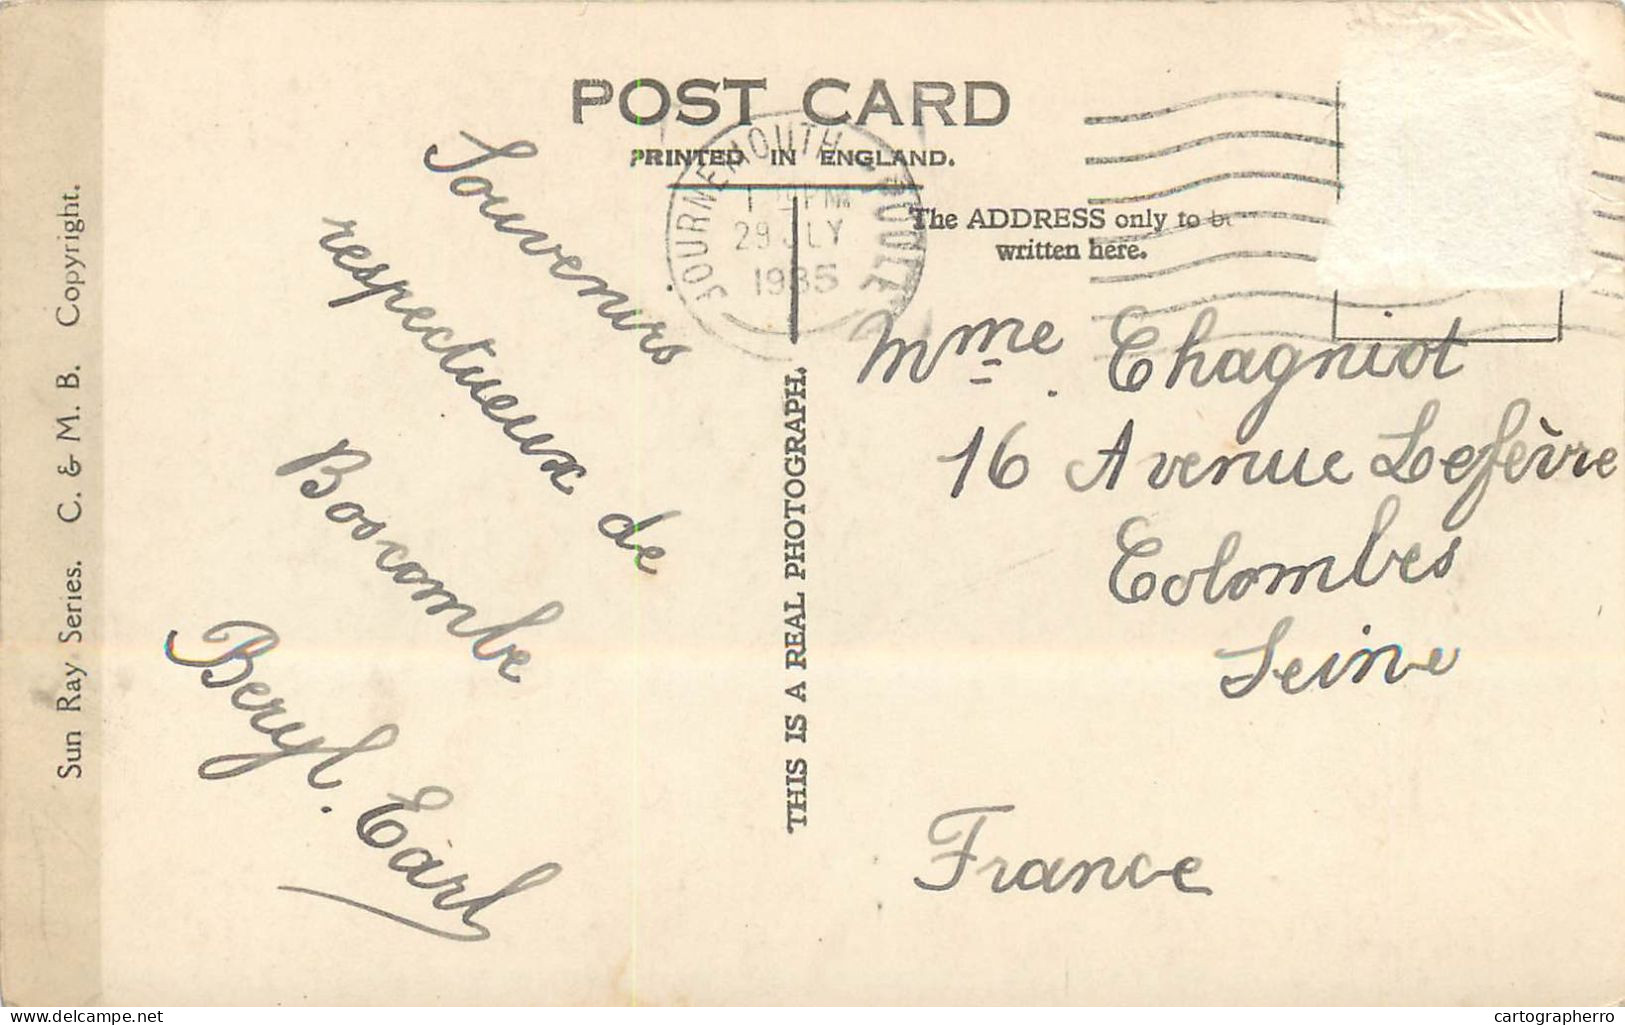 POST CARD
PRINTED IN ENGLAND.
BOURNEMOUTH - POOLE
PM
29 JLY
1935
The ADDRESS only to be
written here.
Souvenirs
respectueux de
Boscombe
Beryl. Earl
Mme. Chagniot
16 Avenue Lefèvre
Colombes
Seine
France
THIS IS A REAL PHOTOGRAPH.
Sun Ray Series. C. & M. B. Copyright.
delcampe.net
cartographerro